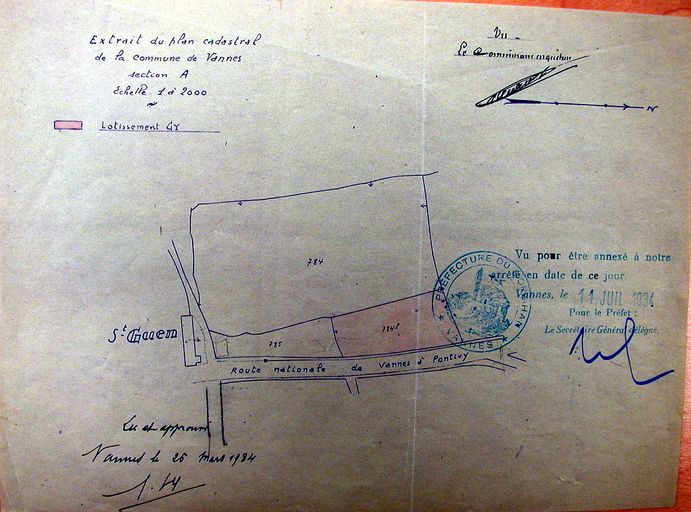 Extrait du plan cadastral
de la commune de Vannes
section A
Echelle 1 à 2000
Lotissement GY
Vu
Le Commissaire enquêteur
N
784
784
785
St Guen
Route nationale de Vannes à Pontivy
PRÉFECTURE DU MORBIHAN
VANNES
Vu pour être annexé à notre
arrêté en date de ce jour
Vannes, le 11 JUIL 1934
Pour le Préfet :
Le Secrétaire Général délégué,
Lu et approuvé
Vannes le 26 mars 1934